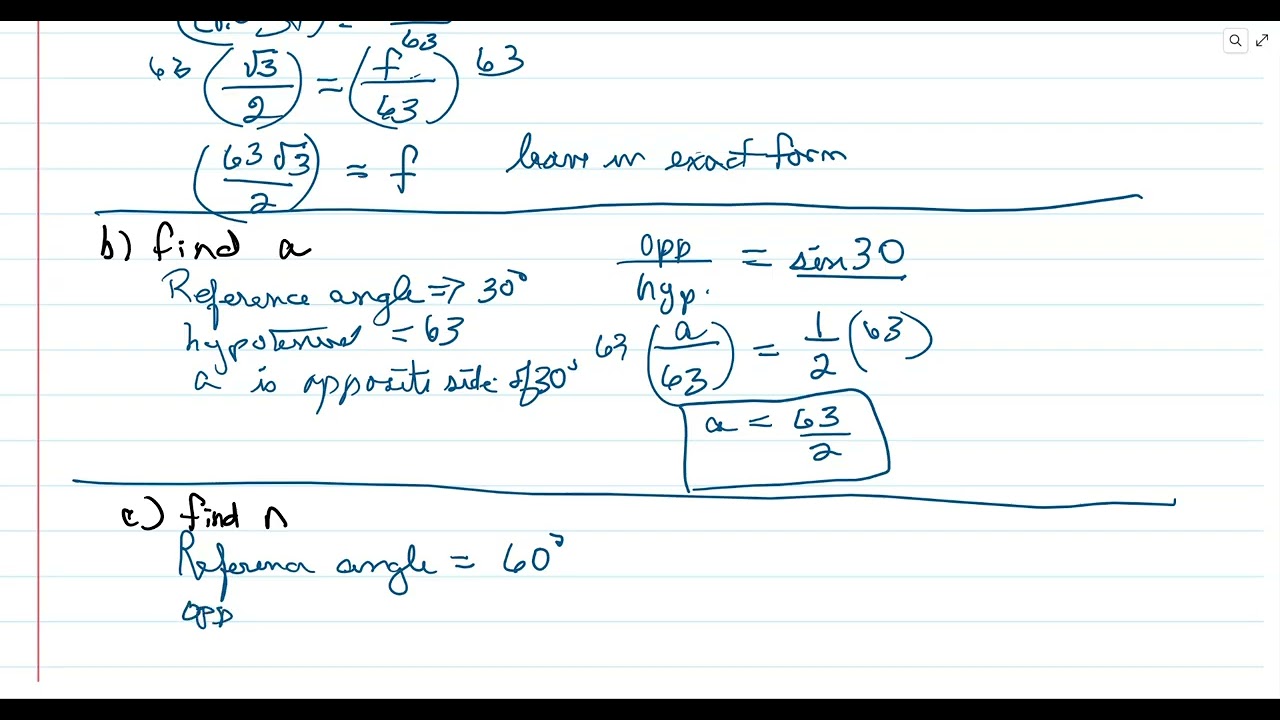 63 (√3/2) = (f/63) 63
(63√3/2) = f leave in exact form
b) find a
Reference angle => 30°
hypotenuse = 63
a is opposite side of 30°
opp/hyp. = sin30
63 (a/63) = 1/2 (63)
a = 63/2
c) find n
Reference angle = 60°
opp